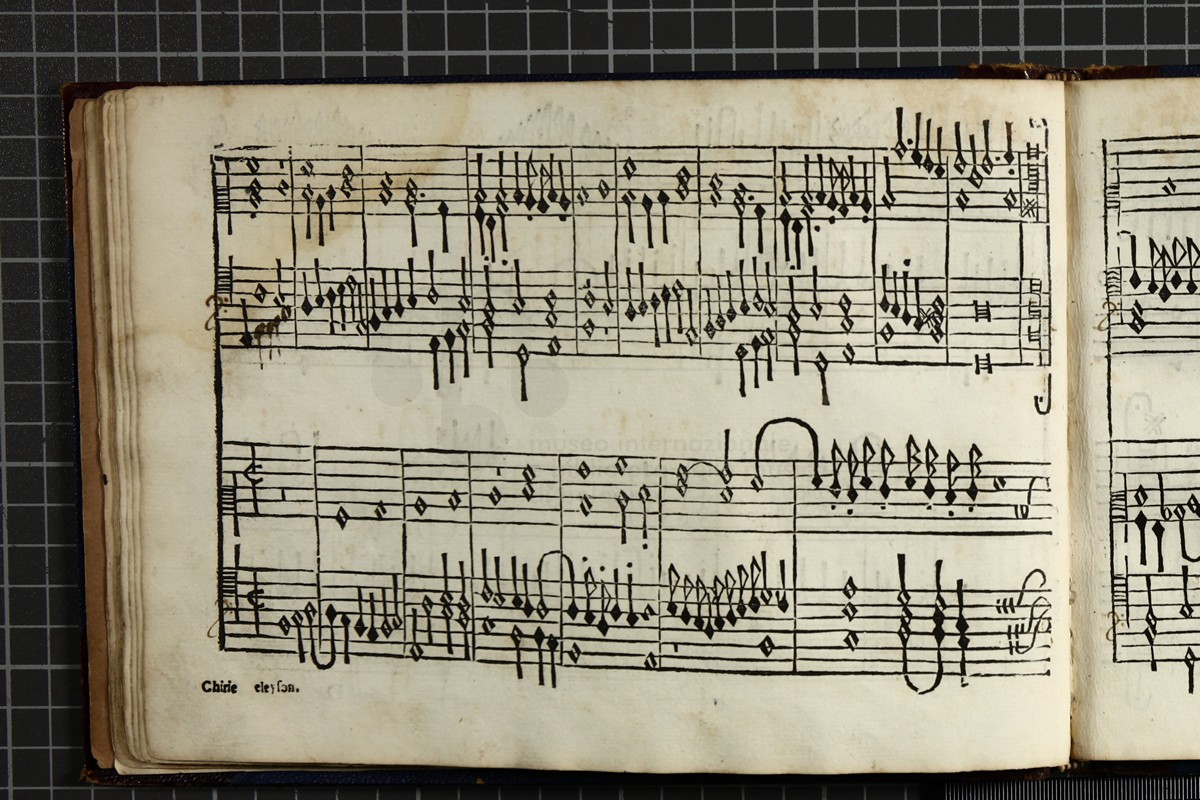 museo internazionale
Chirie eleyson.